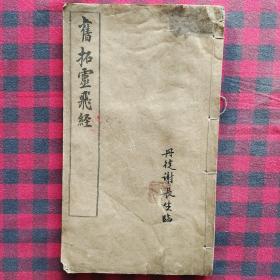 舊拓靈飛経
丹徒謝長生臨